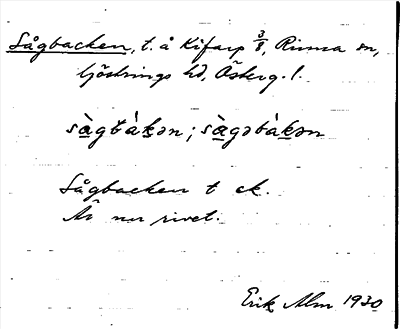 Sågbacken, t. å Kifarp 3/8, Rinna sn,
Göstrings hd, Österg. l.
sàgbàkən; sàgəbàkən
Sågbacken t ek.
Är nu rivet.
Erik Alm 1930